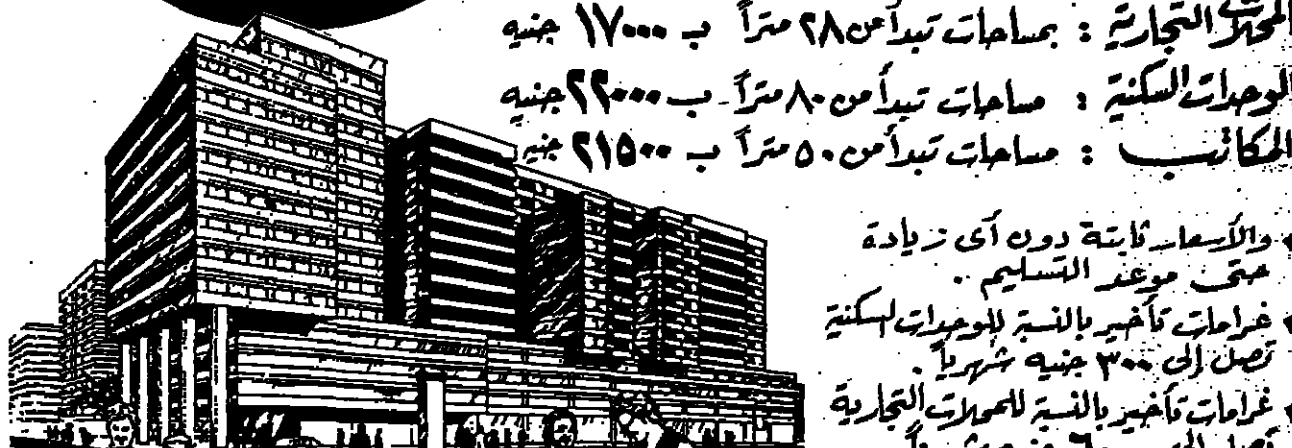 المحلات التجارية : بمساحات تبدأ من ٢٨ متراً ب ١٧٠٠٠ جنيه
الوحدات السكنية : مساحات تبدأ من ٨٠ متراً ب ٢٢٠٠٠ جنيه
المكاتب : مساحات تبدأ من ٥٠ متراً ب ٢١٥٠٠ جنيه
والأسعار ثابتة دون أى زيادة
حتى موعد التسليم ..
غرامات تأخير بالنسبة للوحدات السكنية
تصل إلى ٣٠٠ جنيه شهرياً .
غرامات تأخير بالنسبة للمحلات التجارية